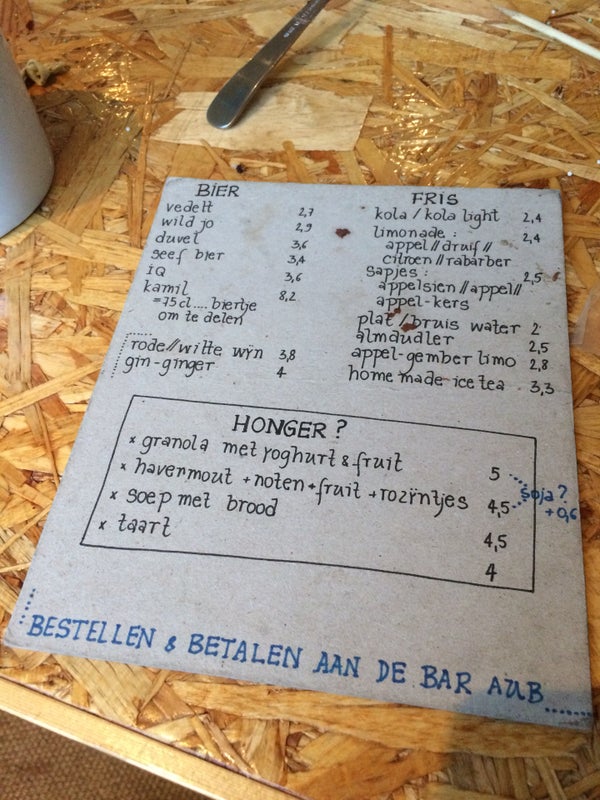 BIER
vedett 2,7
wild jo 2,9
duvel 3,6
seef bier 3,4
IQ 3,6
kamil 8,2
=75cl.... biertje
om te delen
rode//witte wÿn 3,8
gin-ginger 4
FRIS
kola / kola light 2,4
limonade : 2,4
appel // druif //
citroen // rabarber
sapjes : 2,5
appelsien // appel //
appel-kers
plat / bruis water 2
almdudler 2,5
appel-gember limo 2,8
home made ice tea 3,3
HONGER ?
x granola met yoghurt & fruit 5
x havermout + noten + fruit + rozÿntjes 4,5
soja ?
+0,6
x soep met brood 4,5
x taart 4
BESTELLEN & BETALEN AAN DE BAR AUB